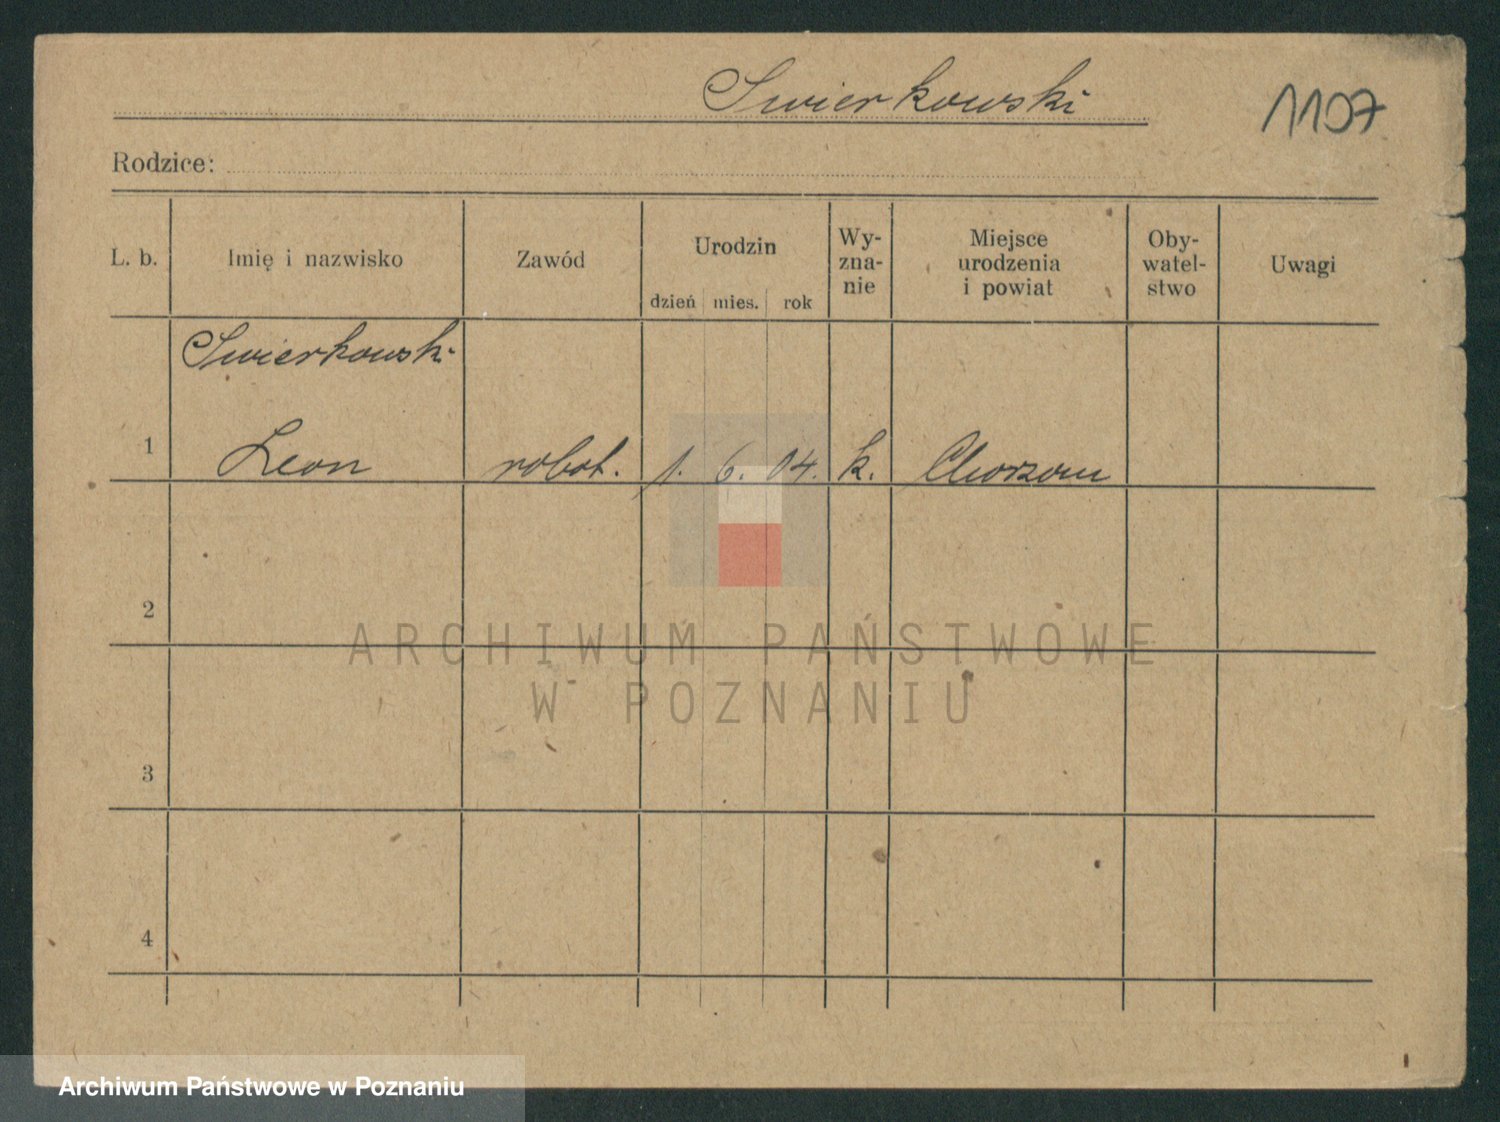 Swierkowski
1107
Rodzice:
L. b.
Imię i nazwisko
Zawód
Urodzin
dzień mies. rok
Wy-
zna-
nie
Miejsce
urodzenia
i powiat
Oby-
watel-
stwo
Uwagi
Swierkowski
1 Leon robot. 1. 6. 04. k. Chorzow
2
ARCHIWUM PAŃSTWOWE
W POZNANIU
3
4
Archiwum Państwowe w Poznaniu